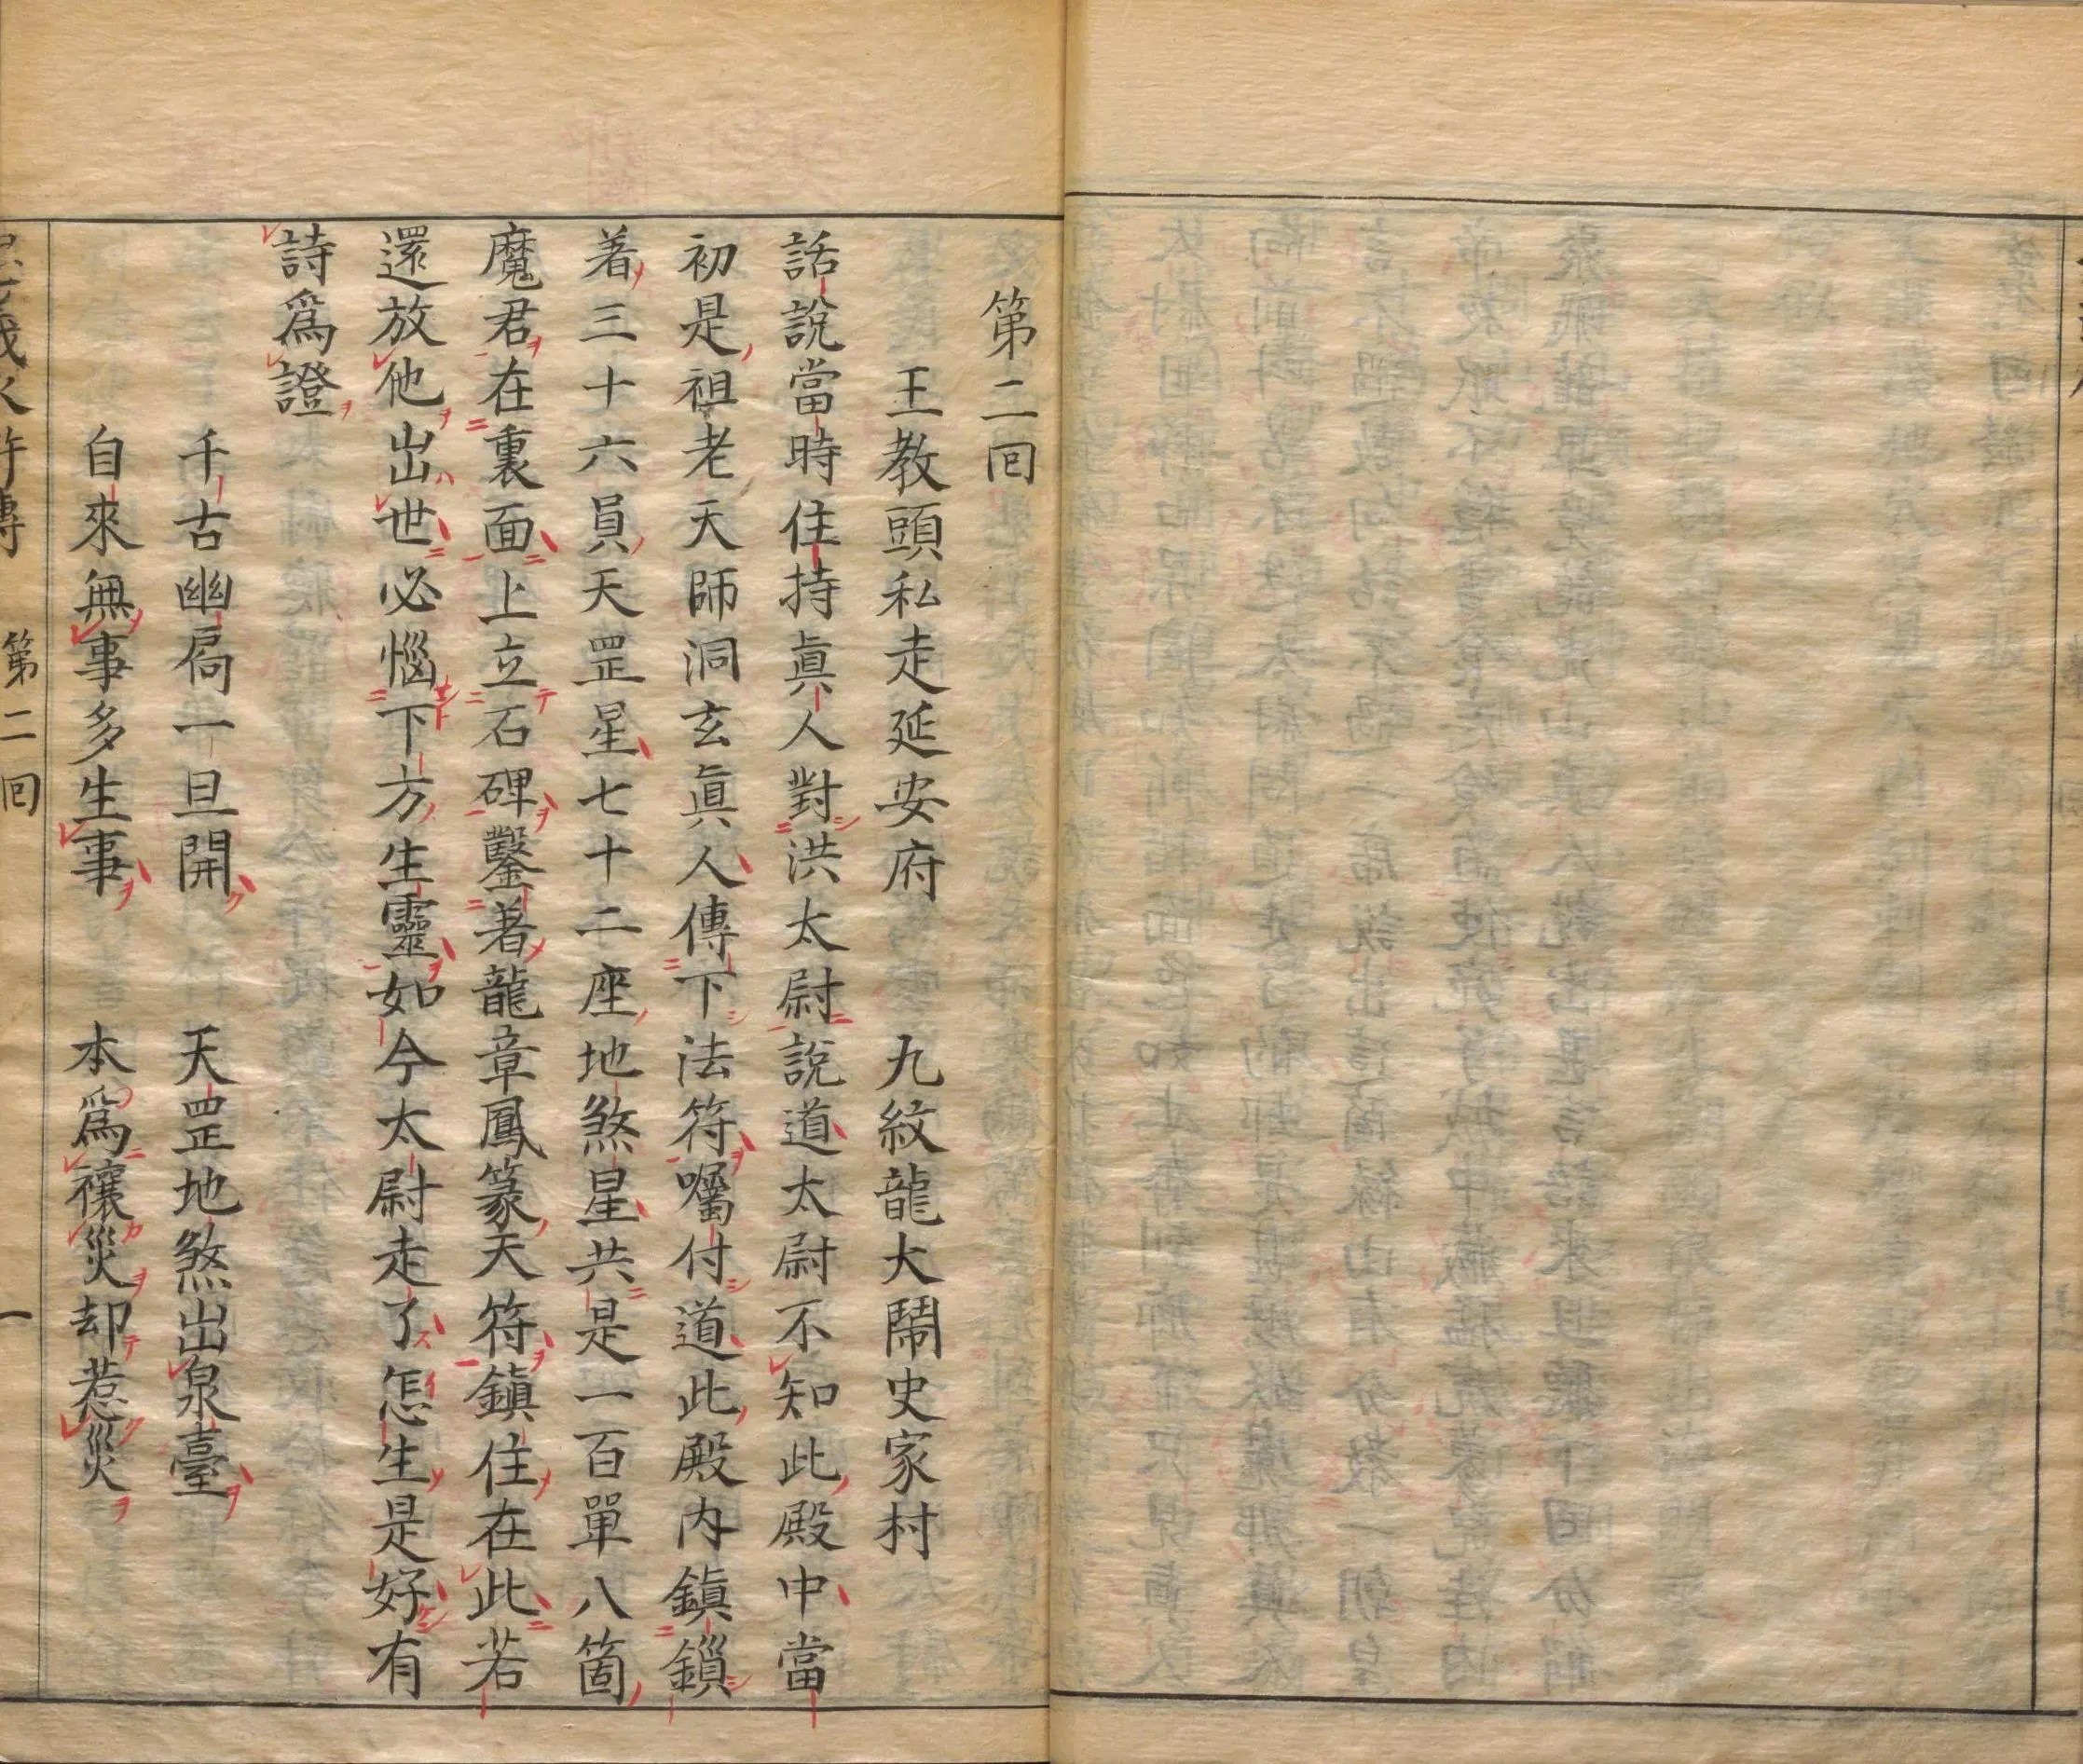 第二回
王教頭私走延安府　九紋龍大鬧史家村
話說當時住持眞人對洪太尉說道太尉不知此殿中當
初是祖老天師洞玄眞人傳下法符囑付道此殿內鎮鎻
着三十六員天罡星七十二座地煞星共是一百單八箇
魔君在裏面上立石碑鑿着龍章鳳篆天符鎮住在此若
還放他出世必惱下方生靈如今太尉走了怎生是好有
詩爲證
千古幽扃一旦開　天罡地煞出泉臺
自來無事多生事　本爲禳災却惹災
第二回　一